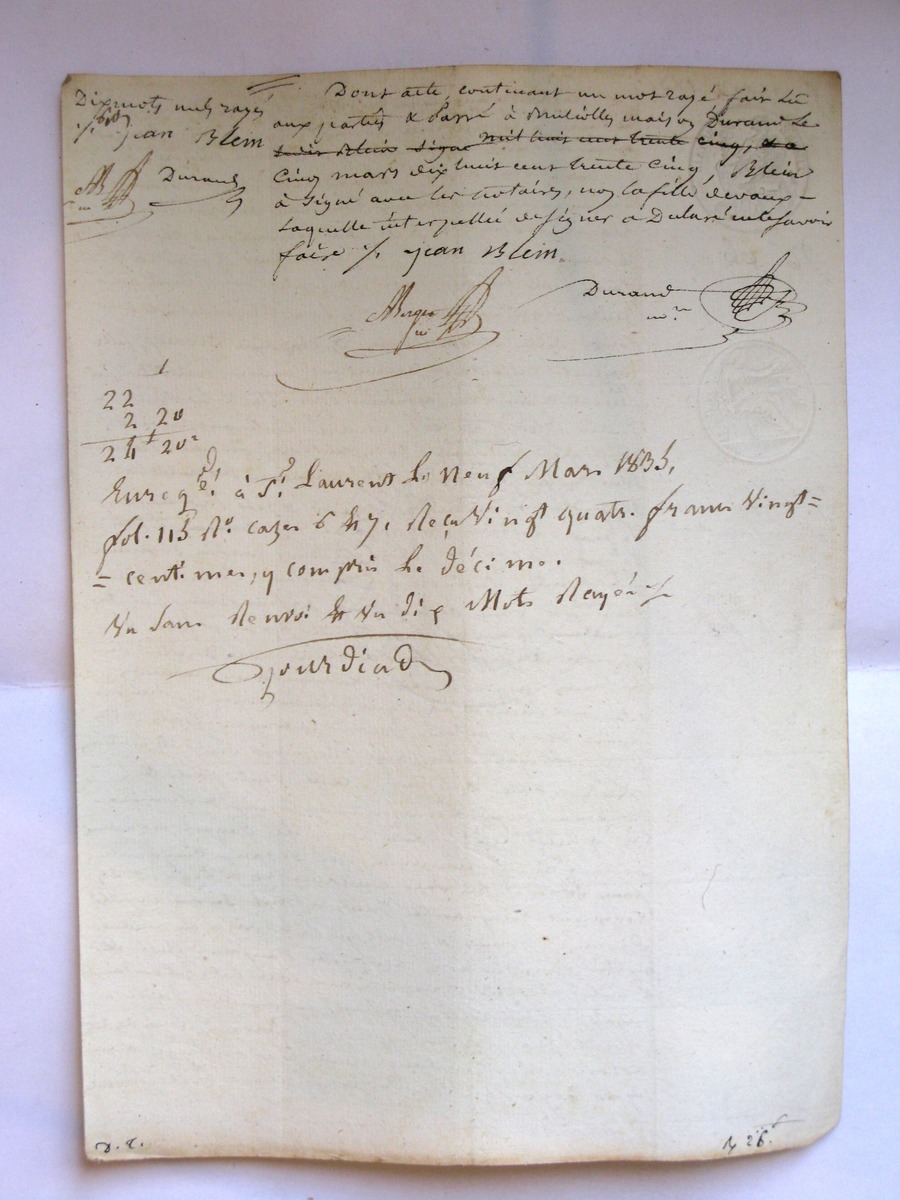 Dix mots nuls rayés
jean Blein
Durand
Dont acte, contenant un mot rayé fait Lu
aux parties & Passé à Brulliolles maison Durand Le
mil huit cent trente cinq,
Cinq mars dix huit cent trente cinq, Blein
à Signé avec les notaires, non la fille devaux-
Laquelle interpellée de signer a Déclaré ne le Savoir
faire ·/. jean Blein
Durand
nre
1
22
2 20
24f 20c
Enregé. à St. Laurent le Neuf Mars 1835,
fol. 115 Ro. cazes 6 et 7. Reçu Vingt quatr. francs Vingt=
= centimes, y compris le décime.
Vu Sans Renvoi et Vu dix Mots Rayés ·/.
Jourdiad
26